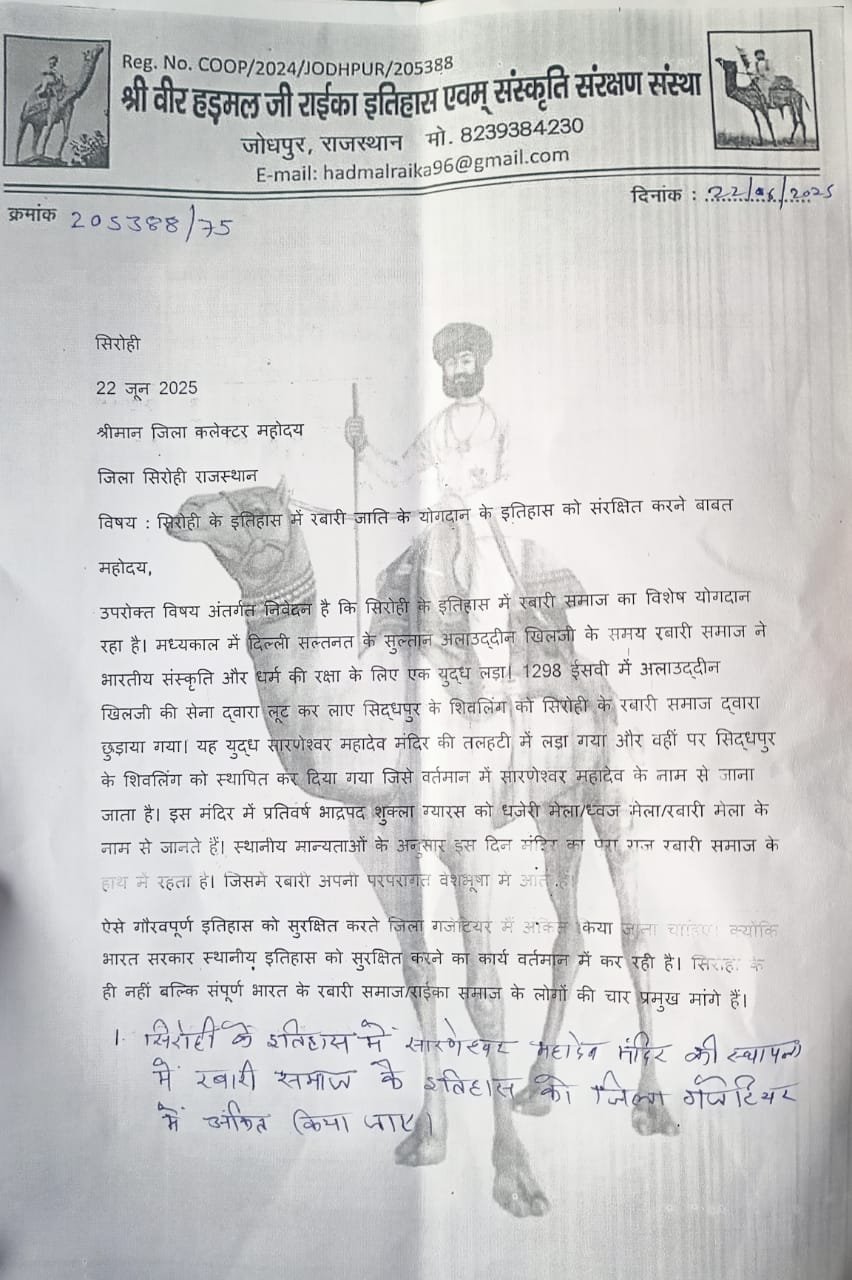 Reg. No. COOP/2024/JODHPUR/205388
श्री वीर हड़मल जी राईका इतिहास एवम् संस्कृति संरक्षण संस्था
जोधपुर, राजस्थान मो. 8239384230
E-mail: hadmalraika96@gmail.com
क्रमांक 205388/75
दिनांक : 22/06/2025
सिरोही
22 जून 2025
श्रीमान जिला कलेक्टर महोदय
जिला सिरोही राजस्थान
विषय : सिरोही के इतिहास में रबारी जाति के योगदान के इतिहास को संरक्षित करने बाबत
महोदय,
उपरोक्त विषय अंतर्गत निवेदन है कि सिरोही के इतिहास में रबारी समाज का विशेष योगदान
रहा है। मध्यकाल में दिल्ली सल्तनत के सुल्तान अलाउद्दीन खिलजी के समय रबारी समाज ने
भारतीय संस्कृति और धर्म की रक्षा के लिए एक युद्ध लड़ा। 1298 ईसवी में अलाउद्दीन
खिलजी की सेना द्वारा लूट कर लाए सिद्धपुर के शिवलिंग को सिरोही के रबारी समाज द्वारा
छुड़ाया गया। यह युद्ध सारणेश्वर महादेव मंदिर की तलहटी में लड़ा गया और वहीं पर सिद्धपुर
के शिवलिंग को स्थापित कर दिया गया जिसे वर्तमान में सारणेश्वर महादेव के नाम से जाना
जाता है। इस मंदिर में प्रतिवर्ष भाद्रपद शुक्ला ग्यारस को धजेरी मेला/ध्वज मेला/रबारी मेला के
नाम से जानते हैं। स्थानीय मान्यताओं के अनुसार इस दिन मंदिर का पूरा राज रबारी समाज के
हाथ में रहता है। जिसमें रबारी अपनी परंपरागत वेशभूषा में आते है।
ऐसे गौरवपूर्ण इतिहास को सुरक्षित करते जिला गजेटियर में अंकित किया जाना चाहिए। क्योंकि
भारत सरकार स्थानीय इतिहास को सुरक्षित करने का कार्य वर्तमान में कर रही है। सिरोही के
ही नहीं बल्कि संपूर्ण भारत के रबारी समाज/राईका समाज के लोगों की चार प्रमुख मांगे हैं।
1. सिरोही के इतिहास में सारणेश्वर महादेव मंदिर की स्थापना
में रबारी समाज के इतिहास को जिला गजेटियर
में अंकित किया जाए।